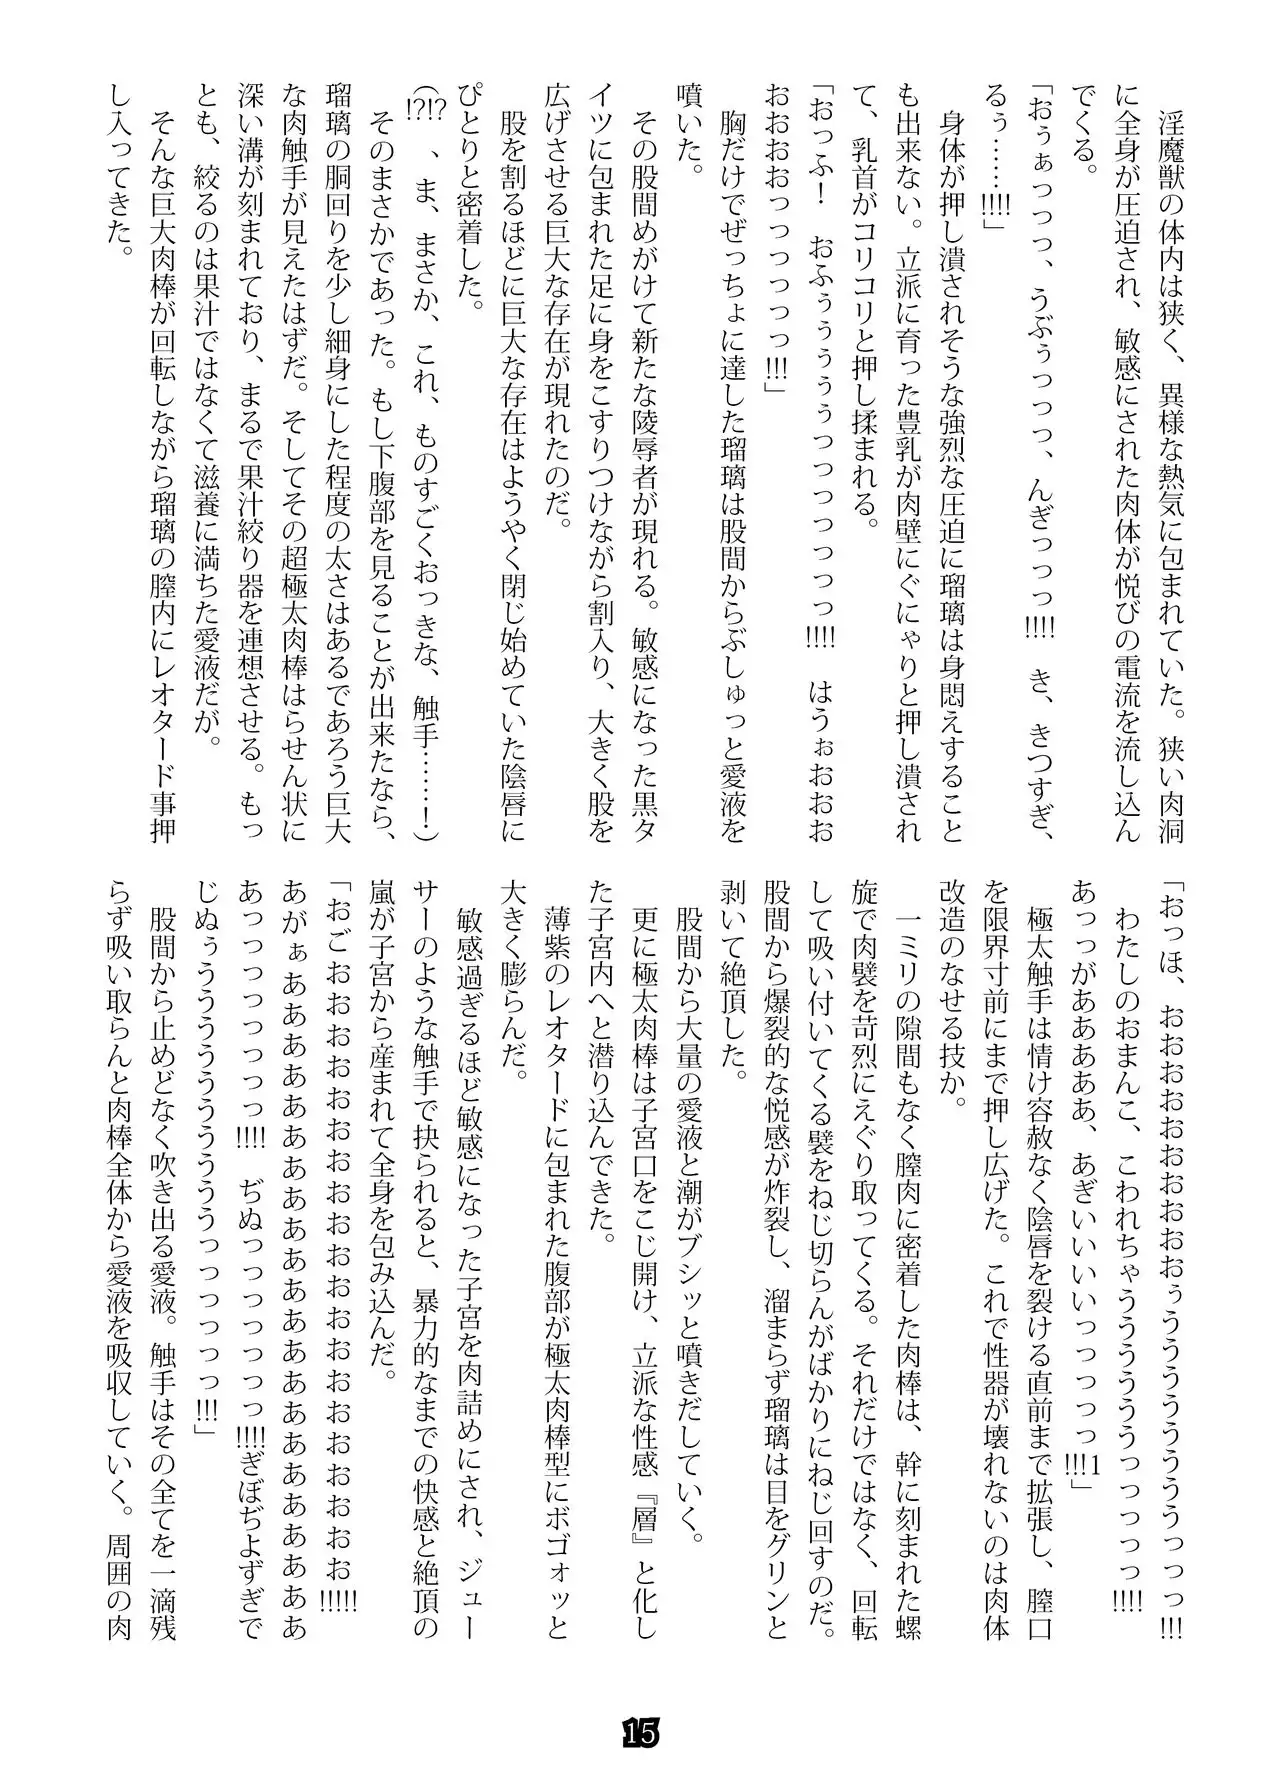 淫魔獣の体内は狭く、異様な熱気に包まれていた。狭い肉洞
に全身が圧迫され、敏感にされた肉体が悦びの電流を流し込ん
でくる。
「おぅぁっっっ、うぶぅっっっ、んぎっっっ!!!!　き、きつすぎ、
るぅ……!!!!」
身体が押し潰されそうな強烈な圧迫に瑠璃は身悶えすること
も出来ない。立派に育った豊乳が肉壁にぐにゃりと押し潰され
て、乳首がコリコリと押し揉まれる。
「おっふ！　おふぅぅぅぅぅっっっっっっっ!!!!　はうぉおおお
おおおおっっっっっ!!!」
胸だけでぜっちょに達した瑠璃は股間からぶしゅっと愛液を
噴いた。
その股間めがけて新たな陵辱者が現れる。敏感になった黒タ
イツに包まれた足に身をこすりつけながら割入り、大きく股を
広げさせる巨大な存在が現れたのだ。
股を割るほどに巨大な存在はようやく閉じ始めていた陰唇に
ぴとりと密着した。
(!?!?　、ま、まさか、これ、ものすごくおっきな、触手……！)
そのまさかであった。もし下腹部を見ることが出来たなら、
瑠璃の胴回りを少し細身にした程度の太さはあるであろう巨大
な肉触手が見えたはずだ。そしてその超極太肉棒はらせん状に
深い溝が刻まれており、まるで果汁絞り器を連想させる。もっ
とも、絞るのは果汁ではなくて滋養に満ちた愛液だが。
そんな巨大肉棒が回転しながら瑠璃の膣内にレオタード事押
し入ってきた。
「おっほ、おおおおおおおおおおぅうううううううううっっっ!!!
わたしのおまんこ、こわれちゃうううううううっっっっっ!!!!
あっっがあああああ、あぎいいいいいっっっっっ!!!1」
極太触手は情け容赦なく陰唇を裂ける直前まで拡張し、膣口
を限界寸前にまで押し広げた。これで性器が壊れないのは肉体
改造のなせる技か。
一ミリの隙間もなく膣肉に密着した肉棒は、幹に刻まれた螺
旋で肉襞を苛烈にえぐり取ってくる。それだけではなく、回転
して吸い付いてくる襞をねじ切らんがばかりにねじ回すのだ。
股間から爆裂的な悦感が炸裂し、溜まらず瑠璃は目をグリンと
剥いて絶頂した。
股間から大量の愛液と潮がブシッと噴きだしていく。
更に極太肉棒は子宮口をこじ開け、立派な性感『層』と化し
た子宮内へと潜り込んできた。
薄紫のレオタードに包まれた腹部が極太肉棒型にボゴォッと
大きく膨らんだ。
敏感過ぎるほど敏感になった子宮を肉詰めにされ、ジュー
サーのような触手で抉られると、暴力的なまでの快感と絶頂の
嵐が子宮から産まれて全身を包み込んだ。
「おごおおおおおおおおおおおおおおおおおおおおおお!!!!!
あがぁあああああああああああああああああああああああ
あっっっっっっっ!!!!　ぢぬっっっっっっっ!!!!ぎぼぢよずぎで
じぬぅうううううううううううっっっっっっ!!!」
股間から止めどなく吹き出る愛液。触手はその全てを一滴残
らず吸い取らんと肉棒全体から愛液を吸収していく。周囲の肉
15